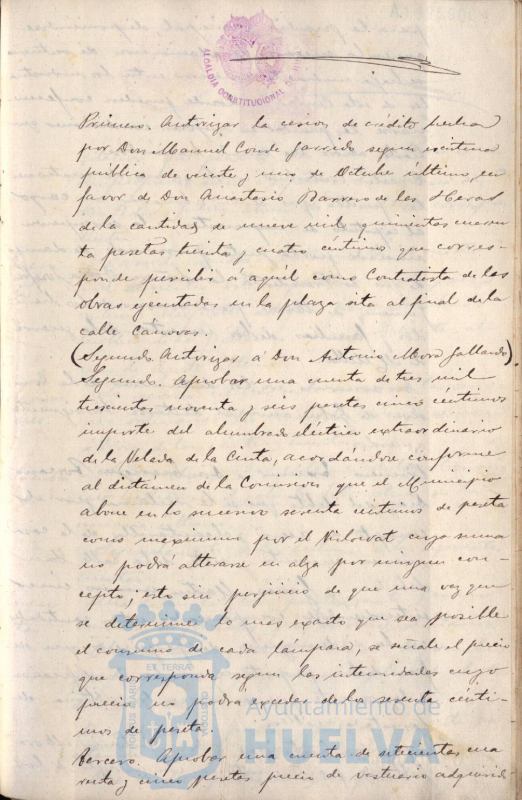 ALCALDIA CONSTITUCIONAL DE HUELVA
Primero. Autorizar la cesión de crédito hecha
por Don Manuel Conde Garrido segun escritura
pública de veinte y uno de Octubre último, en
favor de Don Anastasio Barrero de las Heras
de la cantidad de nueve mil quinientas cuaren-
ta pesetas treinta y cuatro centimos que corres-
ponde percibir á aquél como Contratista de las
obras ejecutadas en la plaza sita al final de la
calle Cánovas.
(Segundo. Autorizar á Don Antonio Mora Gallardo).
Segundo. Aprobar una cuenta de tres mil
trescientas noventa y seis pesetas cinco centimos
importe del alumbrado eléctrico extraordinario
de la Velada de la Cinta, acordándose conforme
al dictámen de la Comision que el Municipio
abone en lo sucesivo sesenta centimos de peseta
como maximum por el Kilowat cuya suma
no podrá alterarse en alza por ningun con-
cepto; esto sin perjuicio de que una vez que
se determine lo mas exacto que sea posible
el consumo de cada lámpara, se señale el precio
que corresponda segun las intensidades cuyo
precio no podrá exceder de los sesenta cénti-
mos de peseta.
Tercero. Aprobar una cuenta de setecientas cua
renta y cinco pesetas precio de vestuario adquirido
PORTUS MARIS ET TERRAE CUSTODIA
Ayuntamiento de
HUELVA